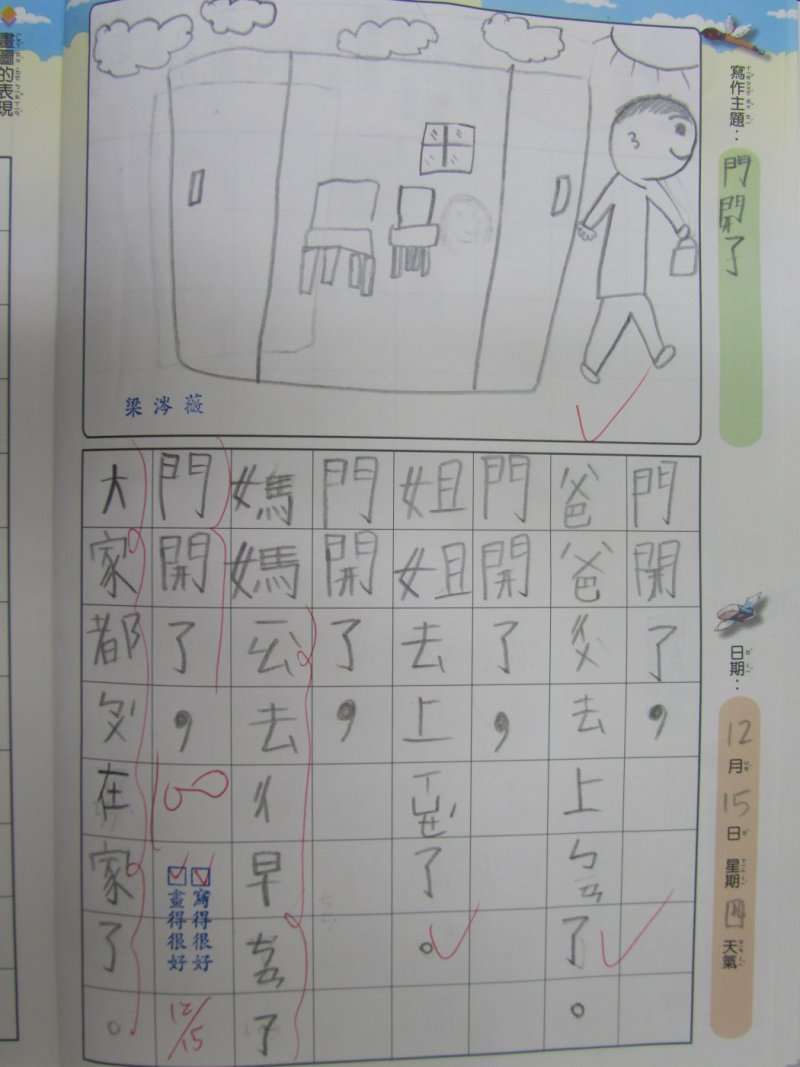 寫作主題：
門開了
日期：
12月15日星期四天氣
門開了，
爸爸ㄡˋ去上ㄅㄢ了。
門開了，
姐姐去上ㄒㄩㄝˊ了。
門開了，
媽媽ㄊㄡ去ㄔ早ㄘㄢ了
門開了，
大家都ㄅㄨˊ在家了。
100
寫得很好
畫得很好
12/15
梁涔薇
畫圖的表現